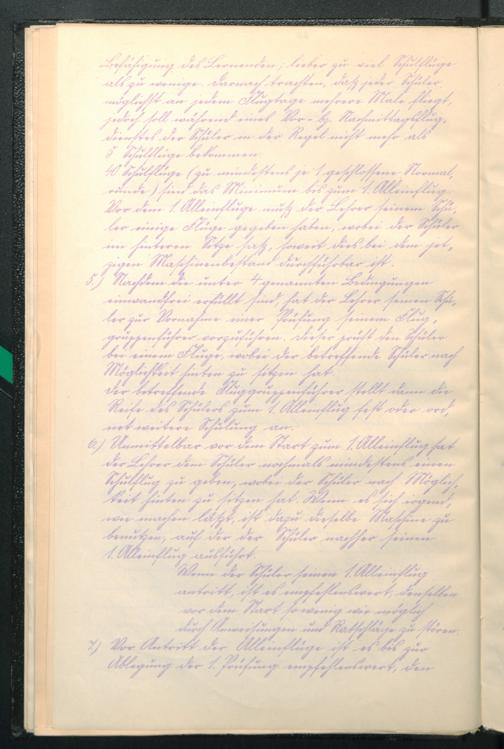 Befähigung des Lernenden; lieber zu viel Schulflüge
als zu wenige. Darnach trachten, daß jeder Schüler
möglichst an jedem Flugtage mehrere Male fliegt,
jedoch soll während eines Vor- bz. Nachmittagsflug-
dienstes der Schüler in der Regel nicht mehr als
5 Schulflüge bekommen.
40 Schulflüge (zu mindestens je 1 geschlossene Normal-
runde) sind das Minimum bis zum 1. Alleinflug.
Vor dem 1. Alleinfluge muß der Lehrer seinem Schü-
ler einige Flüge gegeben haben, wobei der Schüler
im hinteren Sitze saß, soweit dies bei dem jet-
zigen Maschinenbestand durchführbar ist.
5.) Nachdem die unter 4 genannten Bedingungen
einwandfrei erfüllt sind, hat der Lehrer seinen Schü-
ler zur Vornahme einer Prüfung seinem Flug-
gruppenführer vorzuführen. Dieser prüft den Schüler
bei einem Fluge, wobei der betreffende Schüler nach
Möglichkeit hinten zu sitzen hat.
Der betreffende Fluggruppenführer stellt dann die
Reife des Schülers zum 1. Alleinflug fest oder ord-
net weitere Schulung an.
6.) Unmittelbar vor dem Start zum 1. Alleinflug hat
der Lehrer dem Schüler nochmals mindestens einen
Schulflug zu geben, wobei der Schüler nach Möglich-
keit hinten zu sitzen hat. Wenn es sich irgend-
wie machen läßt, ist dazu dieselbe Maschine zu
benutzen, auf der der Schüler nachher seinen
1. Alleinflug ausführt.
Wenn der Schüler seinen 1. Alleinflug
antritt, ist es empfehlenswert, denselben
vor dem Start so wenig wie möglich
durch Anweisungen und Ratschläge zu stören.
7.) Vor Antritt der Alleinflüge ist es bis zur
Ablegung der 1. Prüfung empfehlenswert, den